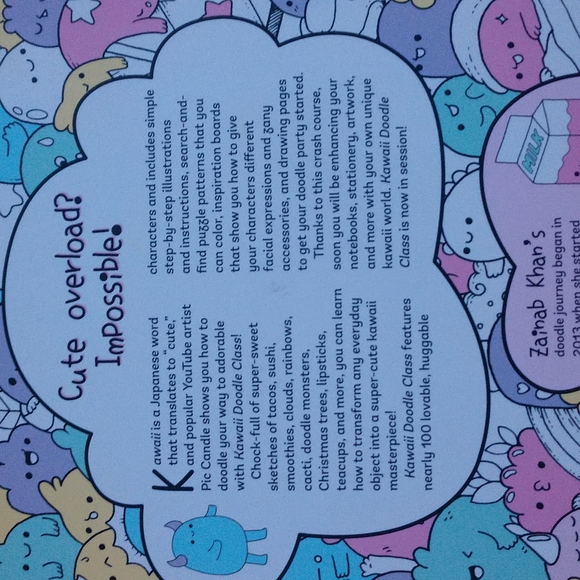 Cute overload?
ImPossible!
Kawaii is a Japanese word
that translates to "cute,"
and popular YouTube artist
Pic Candle shows you how to
doodle your way to adorable
with Kawaii Doodle Class!
Chock-full of super-sweet
sketches of tacos, sushi,
smoothies, clouds, rainbows,
cacti, doodle monsters,
Christmas trees, lipsticks,
teacups, and more, you can learn
how to transform any everyday
object into a super-cute kawaii
masterpiece!
Kawaii Doodle Class features
nearly 100 lovable, huggable
characters and includes simple
step-by-step illustrations
and instructions, search-and-
find puzzle patterns that you
can color, inspiration boards
that show you how to give
your characters different
facial expressions and zany
accessories, and drawing pages
to get your doodle party started.
Thanks to this crash course,
soon you will be enhancing your
notebooks, stationery, artwork,
and more with your own unique
kawaii world. Kawaii Doodle
Class is now in session!
MILK
Zainab Khan's
doodle journey began in
2013 when she started